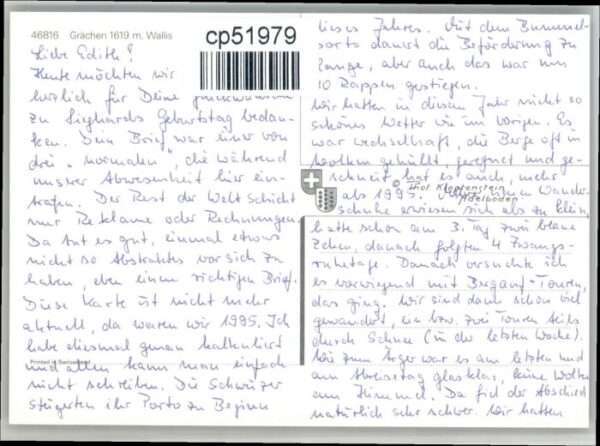 46816 Grächen 1619 m, Wallis
cp51979
Liebe Edith!
Heute möchten wir
herzlich für Deine
zu Sieghards Geburtstag bedan-
ken. Dein Brief war einer von
drei "normalen", die während
unserer Abwesenheit hier ein-
trafen. Der Rest der Welt schickt
nur Reklame oder Rechnungen.
Da tut es gut, einmal etwas
nicht so Abstraktes vor sich zu
haben, eben einen richtigen Brief.
Diese Karte ist nicht mehr
aktuell, da waren wir 1995. Ich
habe diesmal genau kalkuliert
und allen kann man einfach
nicht schreiben. Die Schweizer
steigerten ihr Porto zu Beginn
Printed in Switzerland
dieses Jahres. Mit dem Bummel-
porto dauert die Beförderung zu
lange, aber auch das war um
10 Rappen gestiegen.
Wir hatten in diesem Jahr nicht so
schönes Wetter wie im vorigen. Es
war wechselhaft, die Berge oft in
Wolken gehüllt, geregnet und ge-
schneit hat es auch, mehr
als 1995. Meine neuen Wander-
schuhe erwiesen sich als zu klein,
hatte schon am 3. Tag zwei blaue
Zehen, danach folgten 4 Zwangs-
ruhetage. Danach versuchte ich
es vorwiegend mit Bergauf-Touren,
das ging. Wir sind dann schon viel
gewandert, ein bzw. zwei Touren teils
durch Schnee (in der letzten Woche).
Wie zum Ärger war es am letzten und
am Abreisetag glasklar, keine Wolken
am Himmel. Da fiel der Abschied
natürlich sehr schwer. Wir hatten
© Thof Klopfenstein
Adelboden